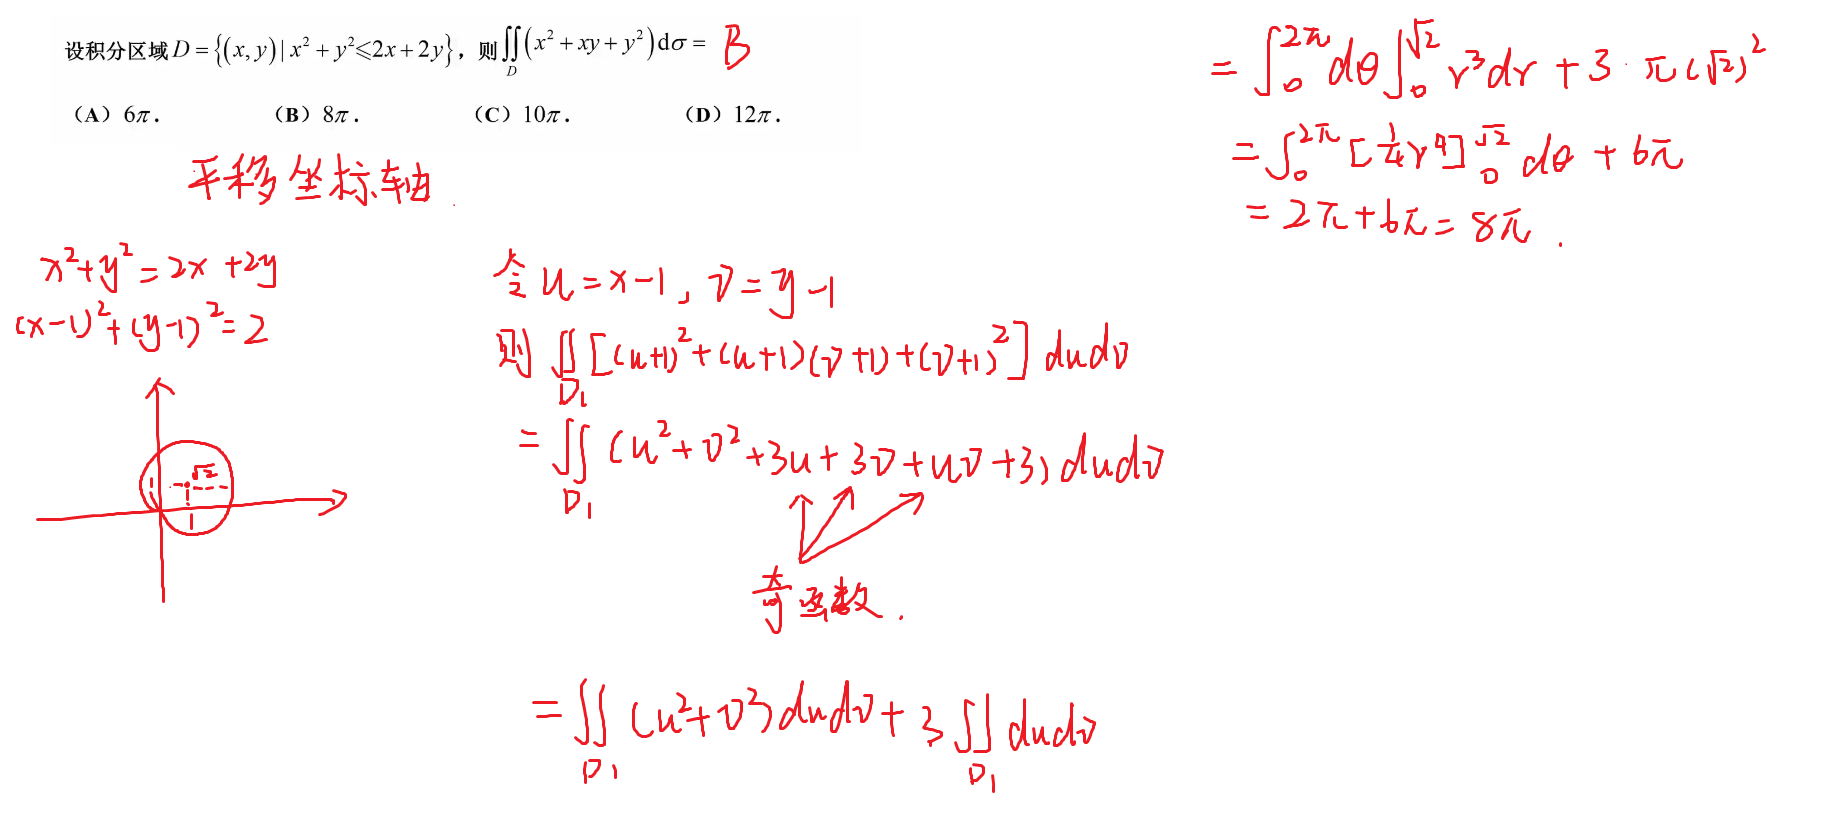 设积分区域 D = {(x, y) | x² + y² ⩽ 2x + 2y}，则 ∬_D (x² + xy + y²) dσ = B
（A）6π． （B）8π． （C）10π． （D）12π．
平移坐标轴．
x² + y² = 2x + 2y
(x-1)² + (y-1)² = 2
√2
1 1
令 u = x-1, v = y-1
则 ∬_D₁ [(u+1)² + (u+1)(v+1) + (v+1)²] du dv
= ∬_D₁ (u² + v² + 3u + 3v + uv + 3) du dv
奇函数．
= ∬_D₁ (u² + v²) du dv + 3 ∬_D₁ du dv
= ∫₀^{2π} dθ ∫₀^{√2} r³ dr + 3 · π(√2)²
= ∫₀^{2π} [¼ r⁴]₀^{√2} dθ + 6π
= 2π + 6π = 8π．